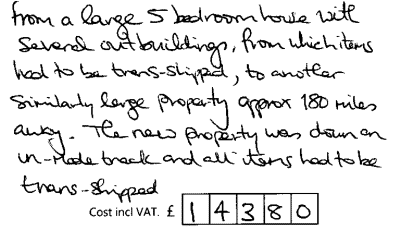 from a large 5 bedroom house with
several outbuildings, from which items
had to be trans-shipped, to another
similarly large property approx 180 miles
away. The new property was down an
un-made track and all items had to be
trans-shipped
Cost incl VAT. £ 14380